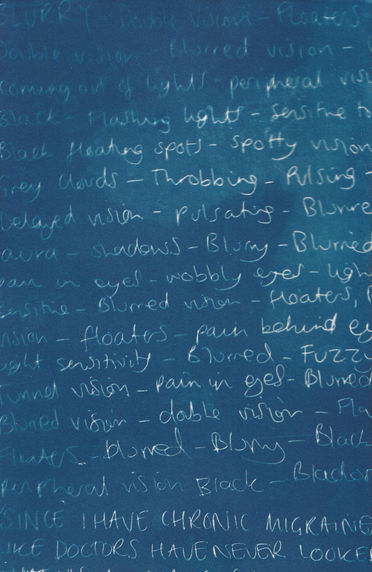 BLURRY - Double Vision - Floaters
Double vision Blurred vision -
coming out of lights - peripheral vis
Black - Flashing lights - Sensitive to
Black floating spots - Spotty vision
Grey clouds - Throbbing - Pulsing -
Delayed vision - pulsating - Blurre
aura - shadows - Blurry - Blurred
pain in eyes - wobbly eyes - ligh
sensitive - Blurred vision - floaters,
vision - floaters - pain behind ey
light sensitivity - Blurred - Fuzzy
Tunnel vision - pain in eyes - Blurred
Blurred vision - double vision - Fla
Floaters - blurred - Blurry - Black
peripheral vision Black - Blackou
SINCE I HAVE CHRONIC MIGRAINE
LIKE DOCTORS HAVE NEVER LOOKE